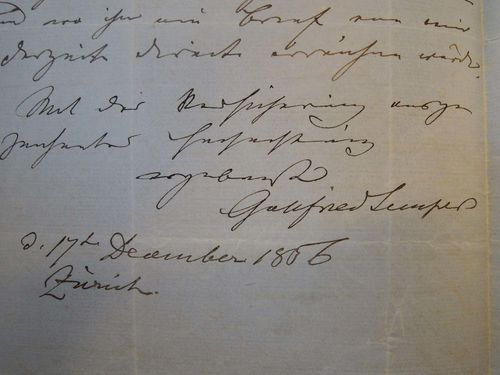 und wo ihn ein Brief von mir
derzeit direct erreichen würde.
Mit der Versicherung ausge
zeichneter Hochachtung
ergebenst
Gottfried Semper
d. 17t December 1866
Zürich.